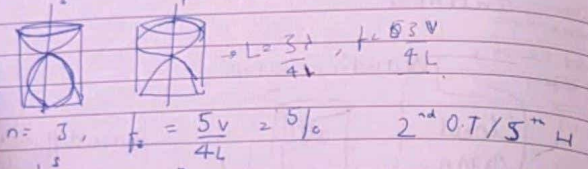 → L = 3λ/4, f = 3V/4L
n = 3, f₀ = 5V/4L = 5f₀ 2nd O.T / 5th H